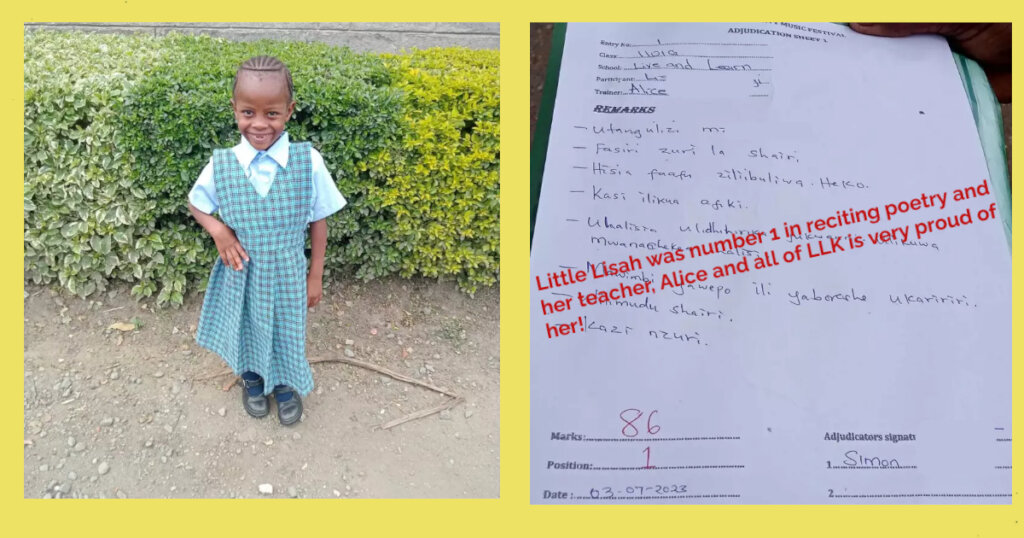 MUSIC FESTIVAL
ADJUDICATION SHEET 1
Entry No: 1
Class:
School: Live and Learn
Participant: Lis
Trainer: Alice
REMARKS
- Utangulizi
- Fasiri zuri la shairi.
- Hisia faafu ziliibuliwa. Heko.
- Kasi ilikua afiki.
- Uhalisia ulidhihirika
- yawepo ili yaboreshe ukariri.
shairi.
Kazi nzuri.
Little Lisah was number 1 in reciting poetry and
her teacher, Alice and all of LLK is very proud of
her!
Marks: 86
Position: 1
Date: 03-07-2023
Adjudicators signatu
1 Simon
2